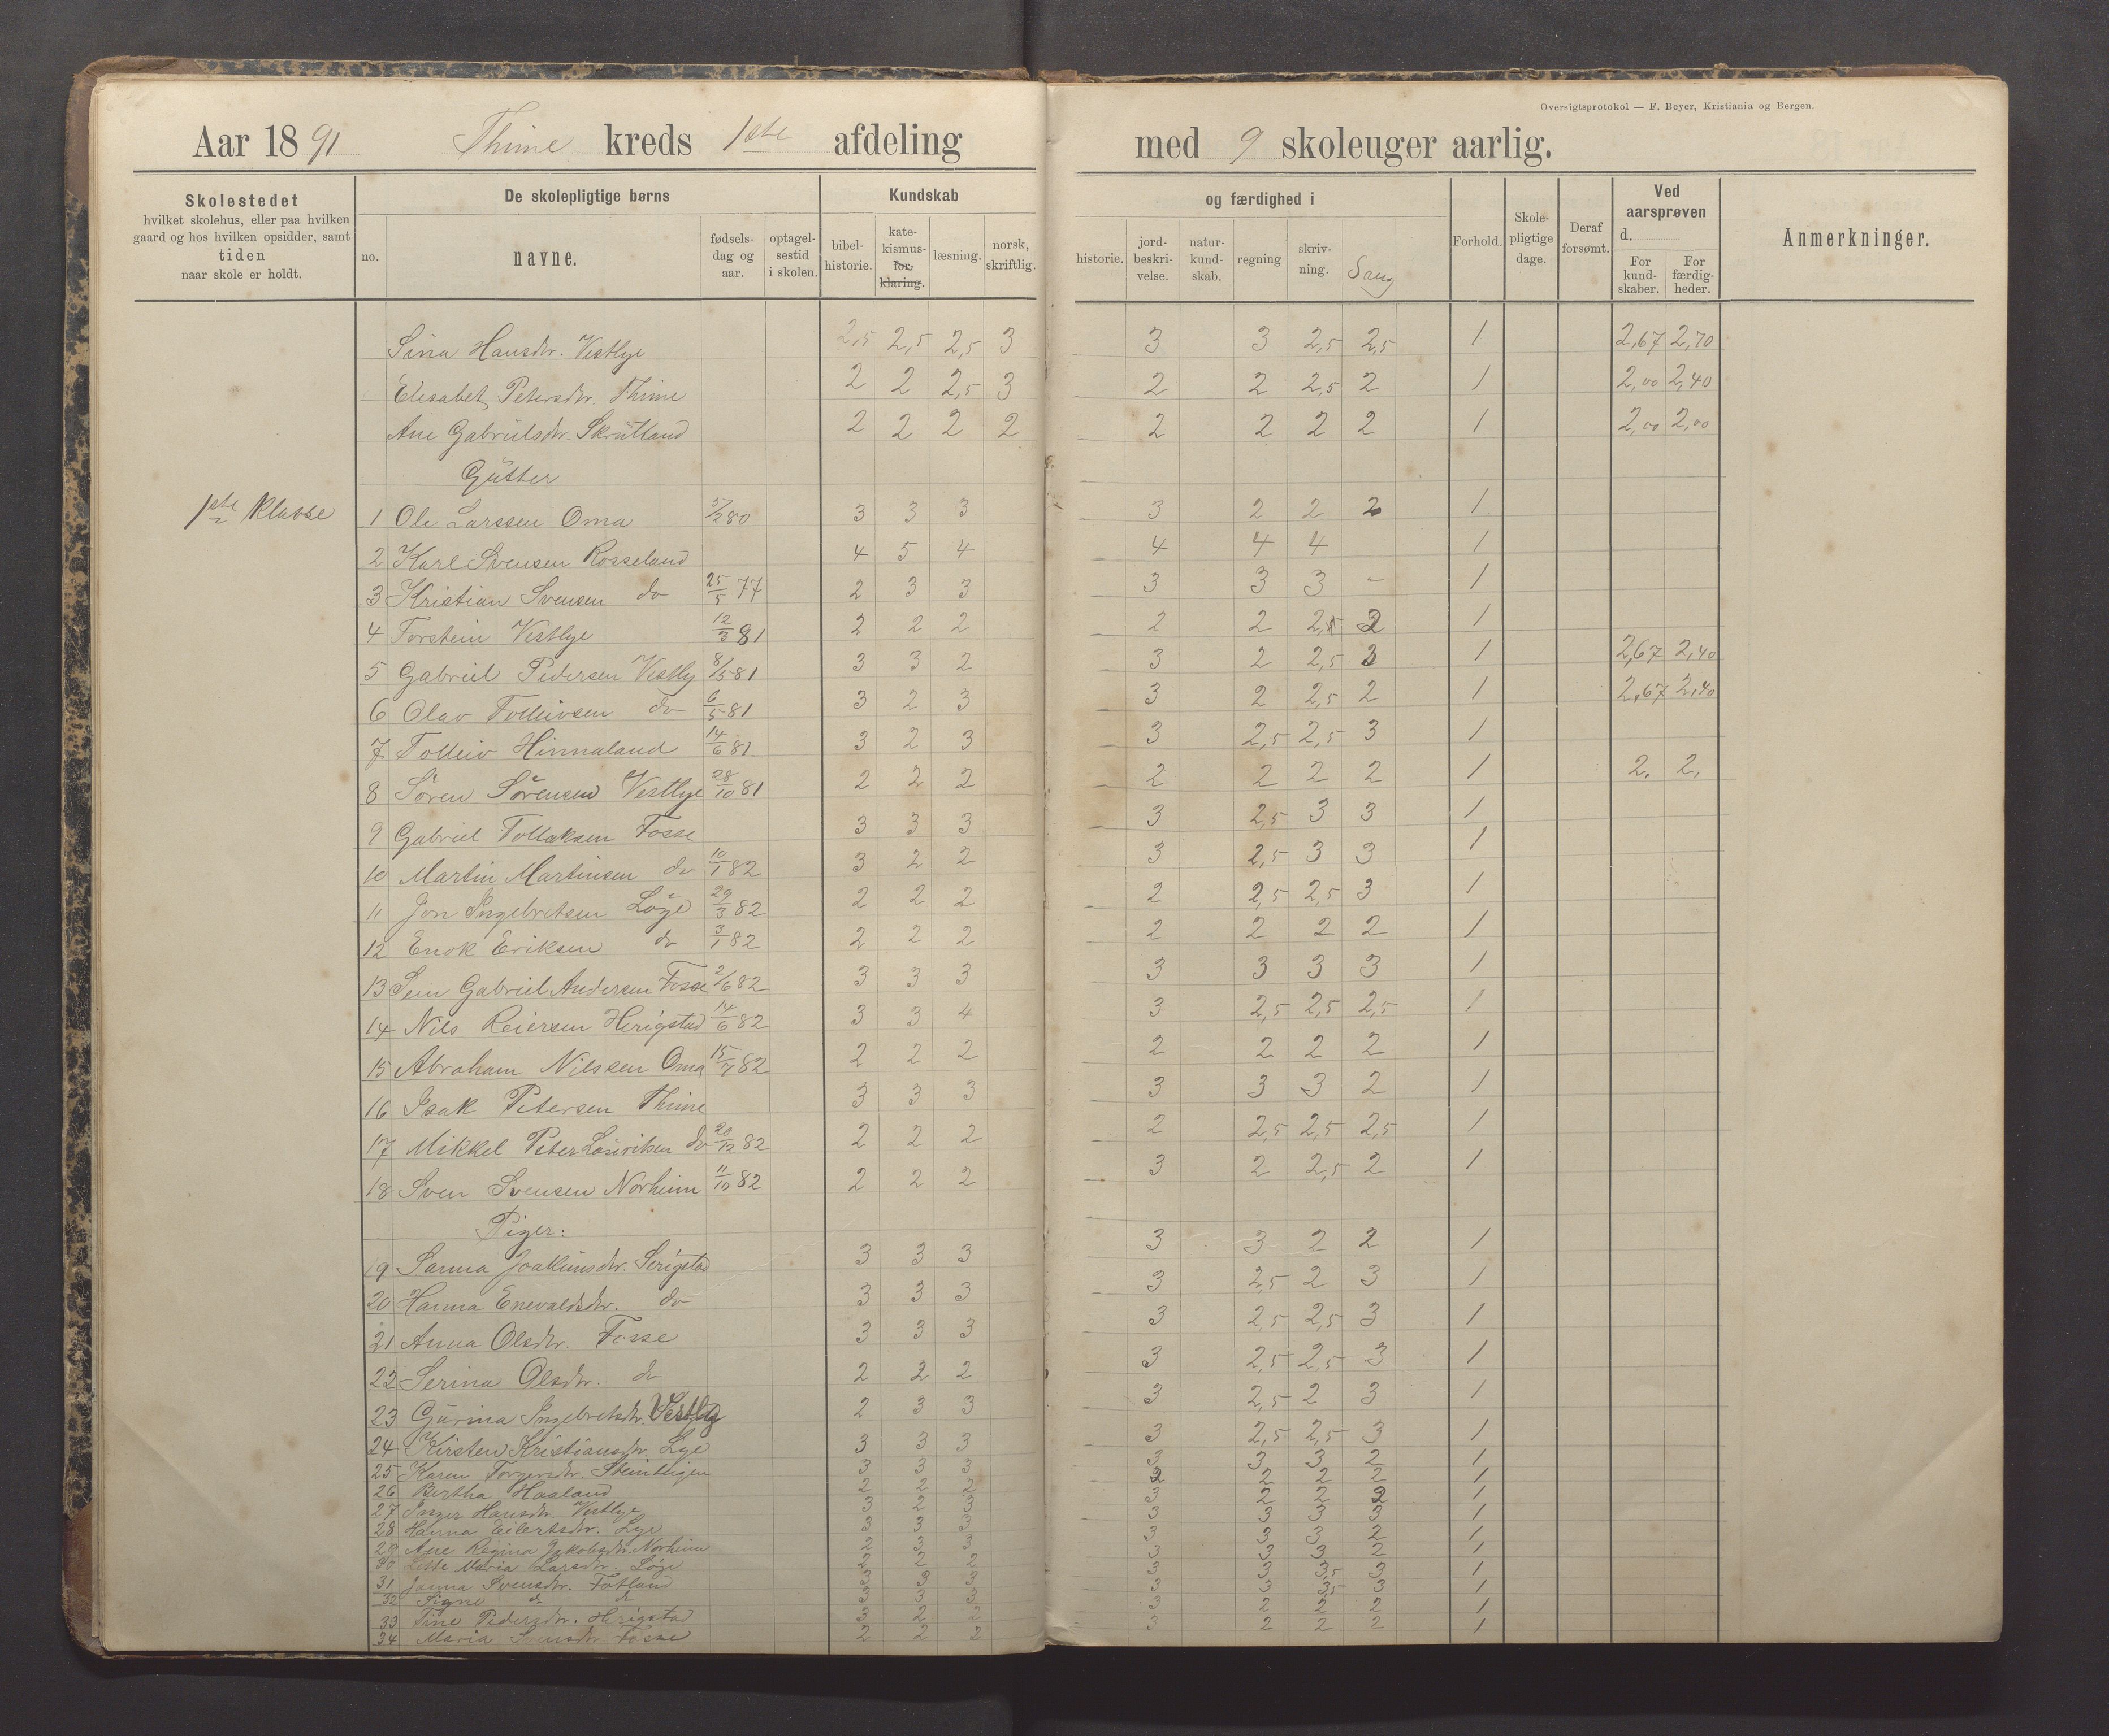 Oversigtsprotokol — F. Beyer, Kristiania og Bergen.
Aar 1891 Thime kreds 1ste afdeling med 9 skoleuger aarlig.
Skolestedet hvilket skolehus, eller paa hvilken gaard og hos hvilken opsidder, samt tiden naar skole er holdt.
De skolepligtige børns
no. navne. fødselsdag og aar. optagelsestid i skolen.
Kundskab og færdighed i
bibelhistorie. katekismusforklaring. læsning. norsk, skriftlig. historie. jordbeskrivelse. naturkundskab. regning skrivning. Sang
Forhold. Skolepligtige dage. Deraf forsømt. Ved aarsprøven d. For kundskaber. For færdigheder. Anmerkninger.
Sina Hansdtr. Vestlye 2,5 2,5 2,5 3 3 3 2,5 2,5 1 2,67 2,70
Elisabet Petersdtr. Thime 2 2 2,5 3 2 2 2,5 2 1 2,00 2,40
Ane Gabrielsdtr. Skrutland 2 2 2 2 2 2 2 2 1 2,00 2,00
Gutter
1ste Klasse 1 Ole Larssen Oma 5/2 80 3 3 3 3 2 2 2 1
2 Karl Svensen Rosseland 4 5 4 4 4 4 1
3 Kristian Svensen do 25/5 77 2 3 3 3 3 3 - 1
4 Torstein Vestlye 12/3 81 2 2 2 2 2 2,5 3 1
5 Gabriel Pedersen Vestly 8/5 81 3 3 2 3 2 2,5 3 1 2,67 2,40
6 Olav Tolleivsen do 6/5 81 3 2 3 3 2 2,5 2 1 2,67 2,40
7 Tolleiv Hinnaland 14/6 81 3 2 3 3 2,5 2,5 3 1
8 Sören Sörensen Vestlye 28/10 81 2 2 2 2 2 2 2 1 2, 2,
9 Gabriel Tollaksen Fosse 3 3 3 3 2,5 3 3 1
10 Martin Martinsen do 10/1 82 3 2 2 3 2,5 3 3 1
11 Jon Ingebretsen Löge 29/3 82 2 2 2 2 2,5 2,5 3 1
12 Enok Eriksen do 3/1 82 2 2 2 2 2 2 2 1
13 Sem Gabriel Andersen Fosse 2/6 82 3 3 3 3 3 3 3 1
14 Nils Reiersen Herigstad 14/6 82 3 3 4 3 2,5 2,5 2,5 1
15 Abraham Nilssen Oma 15/7 82 2 2 2 2 2 2 2 1
16 Isak Petersen Thime 3 3 3 3 3 3 2 1
17 Mikkel Peter Lauriksen do 20/12 82 2 2 2 2 2,5 2,5 2,5 1
18 Sven Svensen Norheim 11/10 82 2 2 2 3 2 2,5 2 1
Piger:
19 Sanna Joakimsdtr. Serigstad 3 3 3 3 3 2 2 1
20 Hanna Enevaldsdtr. do 3 3 3 3 2,5 2 3 1
21 Anna Olsdtr. Fosse 3 3 3 3 2,5 2,5 3 1
22 Serina Olsdtr. do 2 2 2 3 2,5 2,5 3 1
23 Gurina Ingebretsdtr. Vestly 2 3 3 3 2,5 2 3 1
24 Kirsten Kristiansdtr. Lye 3 3 3 3 2,5 2,5 3 1
25 Karen Torgersdtr. 3 3 3 3 3 3 2 1
26 Bertha Haaland 2 2 2 2 2 2 1
27 Inger Hansdtr. Vestlye 3 2 3 3 2 2 1
28 Hanna Eilertsdtr. Lye 3 3 3 3 3 3 3 1
29 Ane Regina Jakobsdtr. Norheim 2 3 3 3 3 3 2 1
30 Maria Larsdtr. Löge 2 2 2 3 3 3 2 1
31 Janna Svensdtr. Fotland 3 3 3 3 3 3,5 3 1
32 Signe do do 3 3 3 3 3 3,5 3 1
33 Tine Pedersdtr. Herigstad 3 2 2 3 2 2 2 1
34 Maria Svensdtr Fosse 2 2 2 3 2 2 2 1